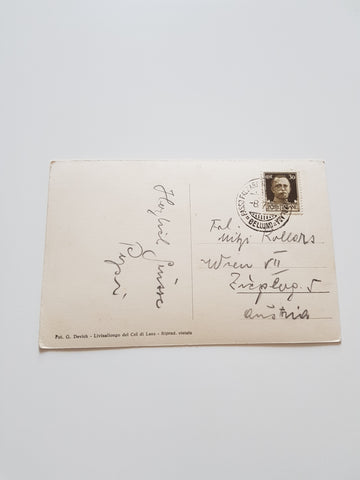 Herzlich
Grüsse
Pepi
30
BELLUNO
Frl.
Mizi Kollars
Wien VII
5
Austria
Fot. G. Devich - Livinallongo del Col di Lana - Riprod. vietata